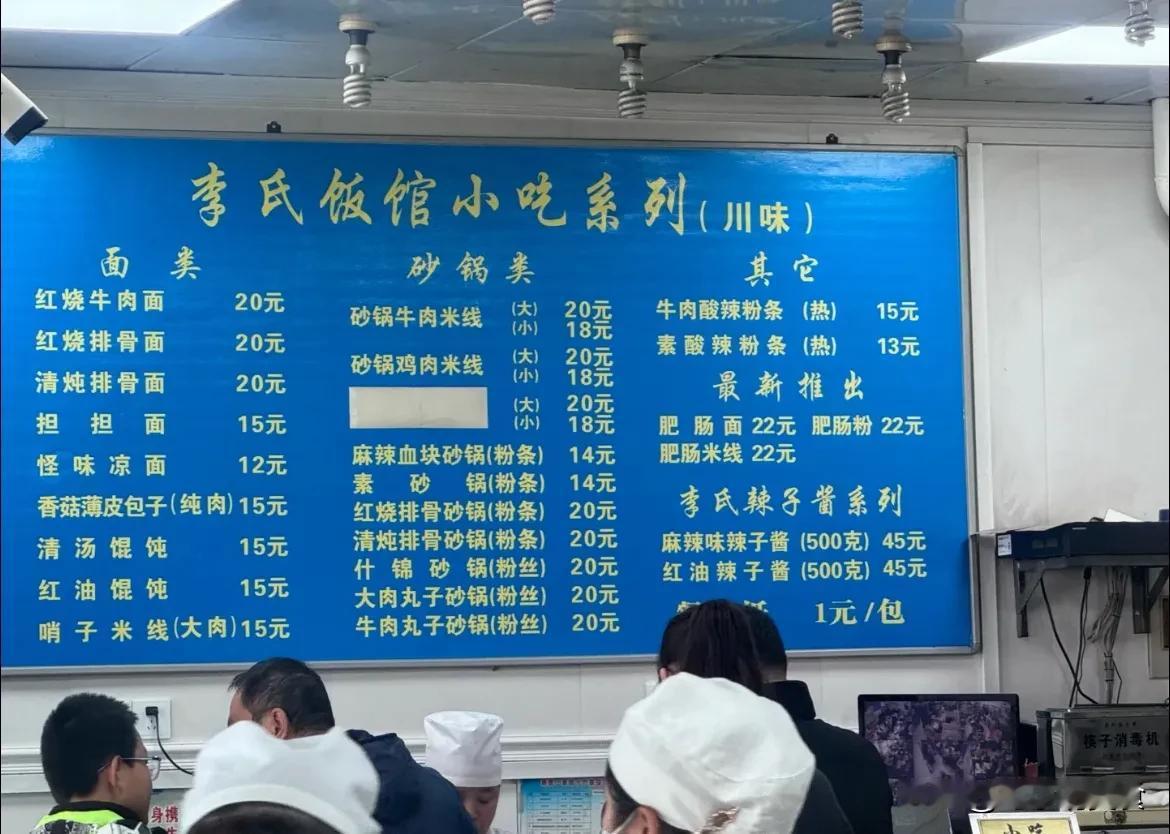 李氏饭馆小吃系列(川味)
面类
红烧牛肉面 20元
红烧排骨面 20元
清炖排骨面 20元
担担面 15元
怪味凉面 12元
香菇薄皮包子(纯肉) 15元
清汤馄饨 15元
红油馄饨 15元
哨子米线(大肉) 15元
砂锅类
砂锅牛肉米线 (大) 20元
(小) 18元
砂锅鸡肉米线 (大) 20元
(小) 18元
(大) 20元
(小) 18元
麻辣血块砂锅(粉条) 14元
素砂锅(粉条) 14元
红烧排骨砂锅(粉条) 20元
清炖排骨砂锅(粉条) 20元
什锦砂锅(粉丝) 20元
大肉丸子砂锅(粉丝) 20元
牛肉丸子砂锅(粉丝) 20元
其它
牛肉酸辣粉条 (热) 15元
素酸辣粉条 (热) 13元
最新推出
肥肠面 22元 肥肠粉 22元
肥肠米线 22元
李氏辣子酱系列
麻辣味辣子酱 (500克) 45元
红油辣子酱 (500克) 45元
1元/包
筷子消毒机
身携
小吃